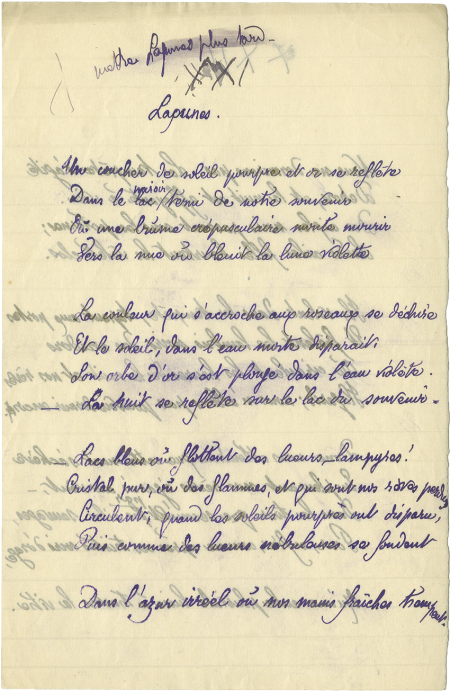 mettre Lagunes plus tard -
Lagunes.
Un coucher de soleil pourpre et or se reflète
Dans le lac / terni de notre souvenir
miroir
Où une brume crépusculaire monte mourir
Vers la nue où bleuit la lune violette
La couleur qui s'accroche aux roseaux se déchire
Et le soleil, dans l'eau morte disparaît;
Son orbe d'or s'est plongé dans l'eau violète.
— La nuit se reflète sur le lac du souvenir -
— Lacs bleus où flottent des lueurs - lampyres!
Cristal pur, où des flammes, et qui sont nos rêves perdus
Circulent, quand les soleils pourprés ont disparu,
Puis comme des lueurs nébuleuses se fondent
Dans l'azur irréel où nos mains fraîches trempent.